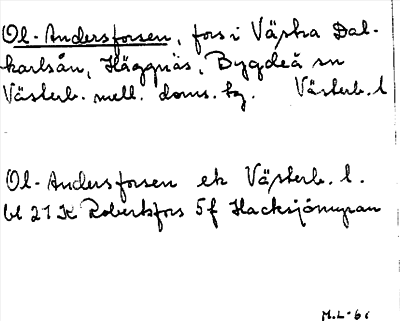 Ol-Andersforsen, fors i Västra Dal-
karlsån, Häggnäs, Bygdeå sn
Västerb. mell. doms. bg. Västerb. l
Ol-Andersforsen ek Västerb. l.
bl 21 K Robertsfors 5 f Hacksjömyran
M.L-61